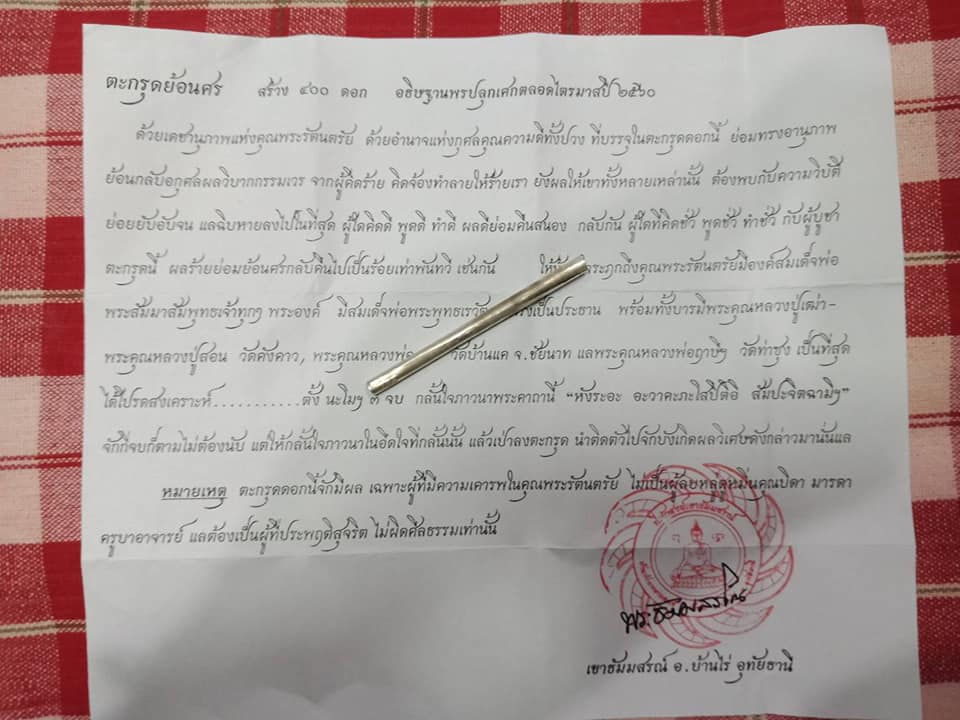 ตะกรุดย้อนศร สร้าง ๔๐๐ ดอก อธิษฐานพรปลุกเศกตลอดไตรมาสปี ๒๕๖๐
ด้วยเดชานุภาพแห่งคุณพระรัตนตรัย ด้วยอำนาจแห่งกุศลคุณความดีทั้งปวง ที่บรรจุในตะกรุดดอกนี้ ย่อมทรงอานุภาพ
ย้อนกลับอกุศลผลวิบากกรรมเวร จากผู้คิดร้าย คิดจ้องทำลายให้ร้ายเรา ยังผลให้เขาทั้งหลายเหล่านั้น ต้องพบกับความวิบัติ
ย่อยยับอับจน แลฉิบหายลงไปในที่สุด ผู้ใดคิดดี พูดดี ทำดี ผลดีย่อมคืนสนอง กลับกัน ผู้ใดที่คิดชั่ว พูดชั่ว ทำชั่ว กับผู้บูชา
ตะกรุดนี้ ผลร้ายย่อมย้อนศรกลับคืนไปเป็นร้อยเท่าพันทวี เช่นกัน ให้ ระฤกถึงคุณพระรัตนตรัยมีองค์สมเด็จพ่อ
พระสัมมาสัมพุทธเจ้าทุกๆ พระองค์ มีสมเด็จพ่อพระพุทธเรวัต เป็นประธาน พร้อมทั้งบารมีพระคุณหลวงปู่เฒ่า-
พระคุณหลวงปู่สอน วัดคังคาว, พระคุณหลวงพ่อ วัดบ้านแค จ.ชัยนาท แลพระคุณหลวงพ่อฤาษีฯ วัดท่าซุง เป็นที่สุด
ได้โปรดสงเคราะห์............ตั้ง นะโมฯ ๓ จบ กลั้นใจภาวนาพระคาถานี้ "หังระอะ อะวาคะภะโสปิติอิ สัมปะจิตฉามิฯ"
จักกี่จบก็ตามไม่ต้องนับ แต่ให้กลั้นใจภาวนาในอึดใจที่กลั้นนั้น แล้วเป่าลงตะกรุด นำติดตัวไปจักบังเกิดผลวิเศษดังกล่าวมานั่นแล
หมายเหตุ ตะกรุดดอกนี้จักมีผล เฉพาะผู้ที่มีความเคารพในคุณพระรัตนตรัย ไม่เป็นผู้ลบหลู่ดูหมิ่นคุณบิดา มารดา
ครูบาอาจารย์ แลต้องเป็นผู้ที่ประพฤติสุจริต ไม่ผิดศีลธรรมเท่านั้น
พระธัมมสรณ์
เขาธัมมสรณ์ อ.บ้านไร่ อุทัยธานี